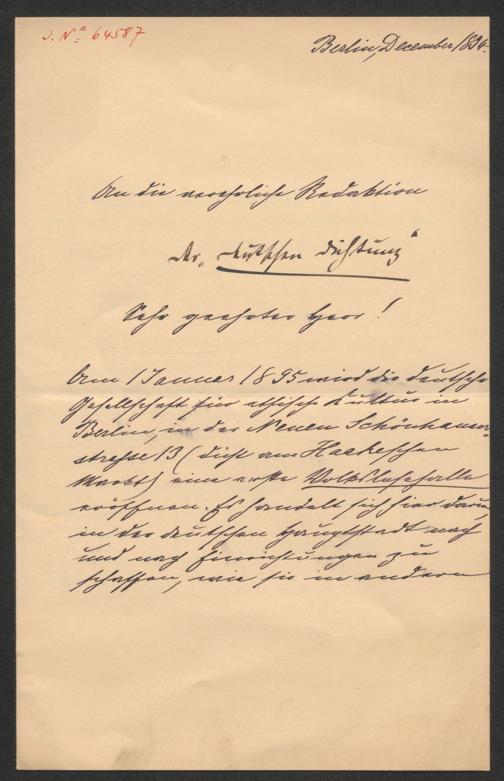 J. No: 64587
Berlin, December 1894.
An die verehrliche Redaktion
der „deutschen Dichtung“
Sehr geehrter Herr!
Am 1 Januar 1895 wird die deutsche
Gesellschaft für ethische Kultur in
Berlin, in der Neuen Schönhauser-
strasse 13 (dicht am Haakeschen
Markt) eine erste Volkslesehalle
eröffnen. Es handelt sich hier darum
in der deutschen Hauptstadt nach
und nach Einrichtungen zu
schaffen, wie sie in andern